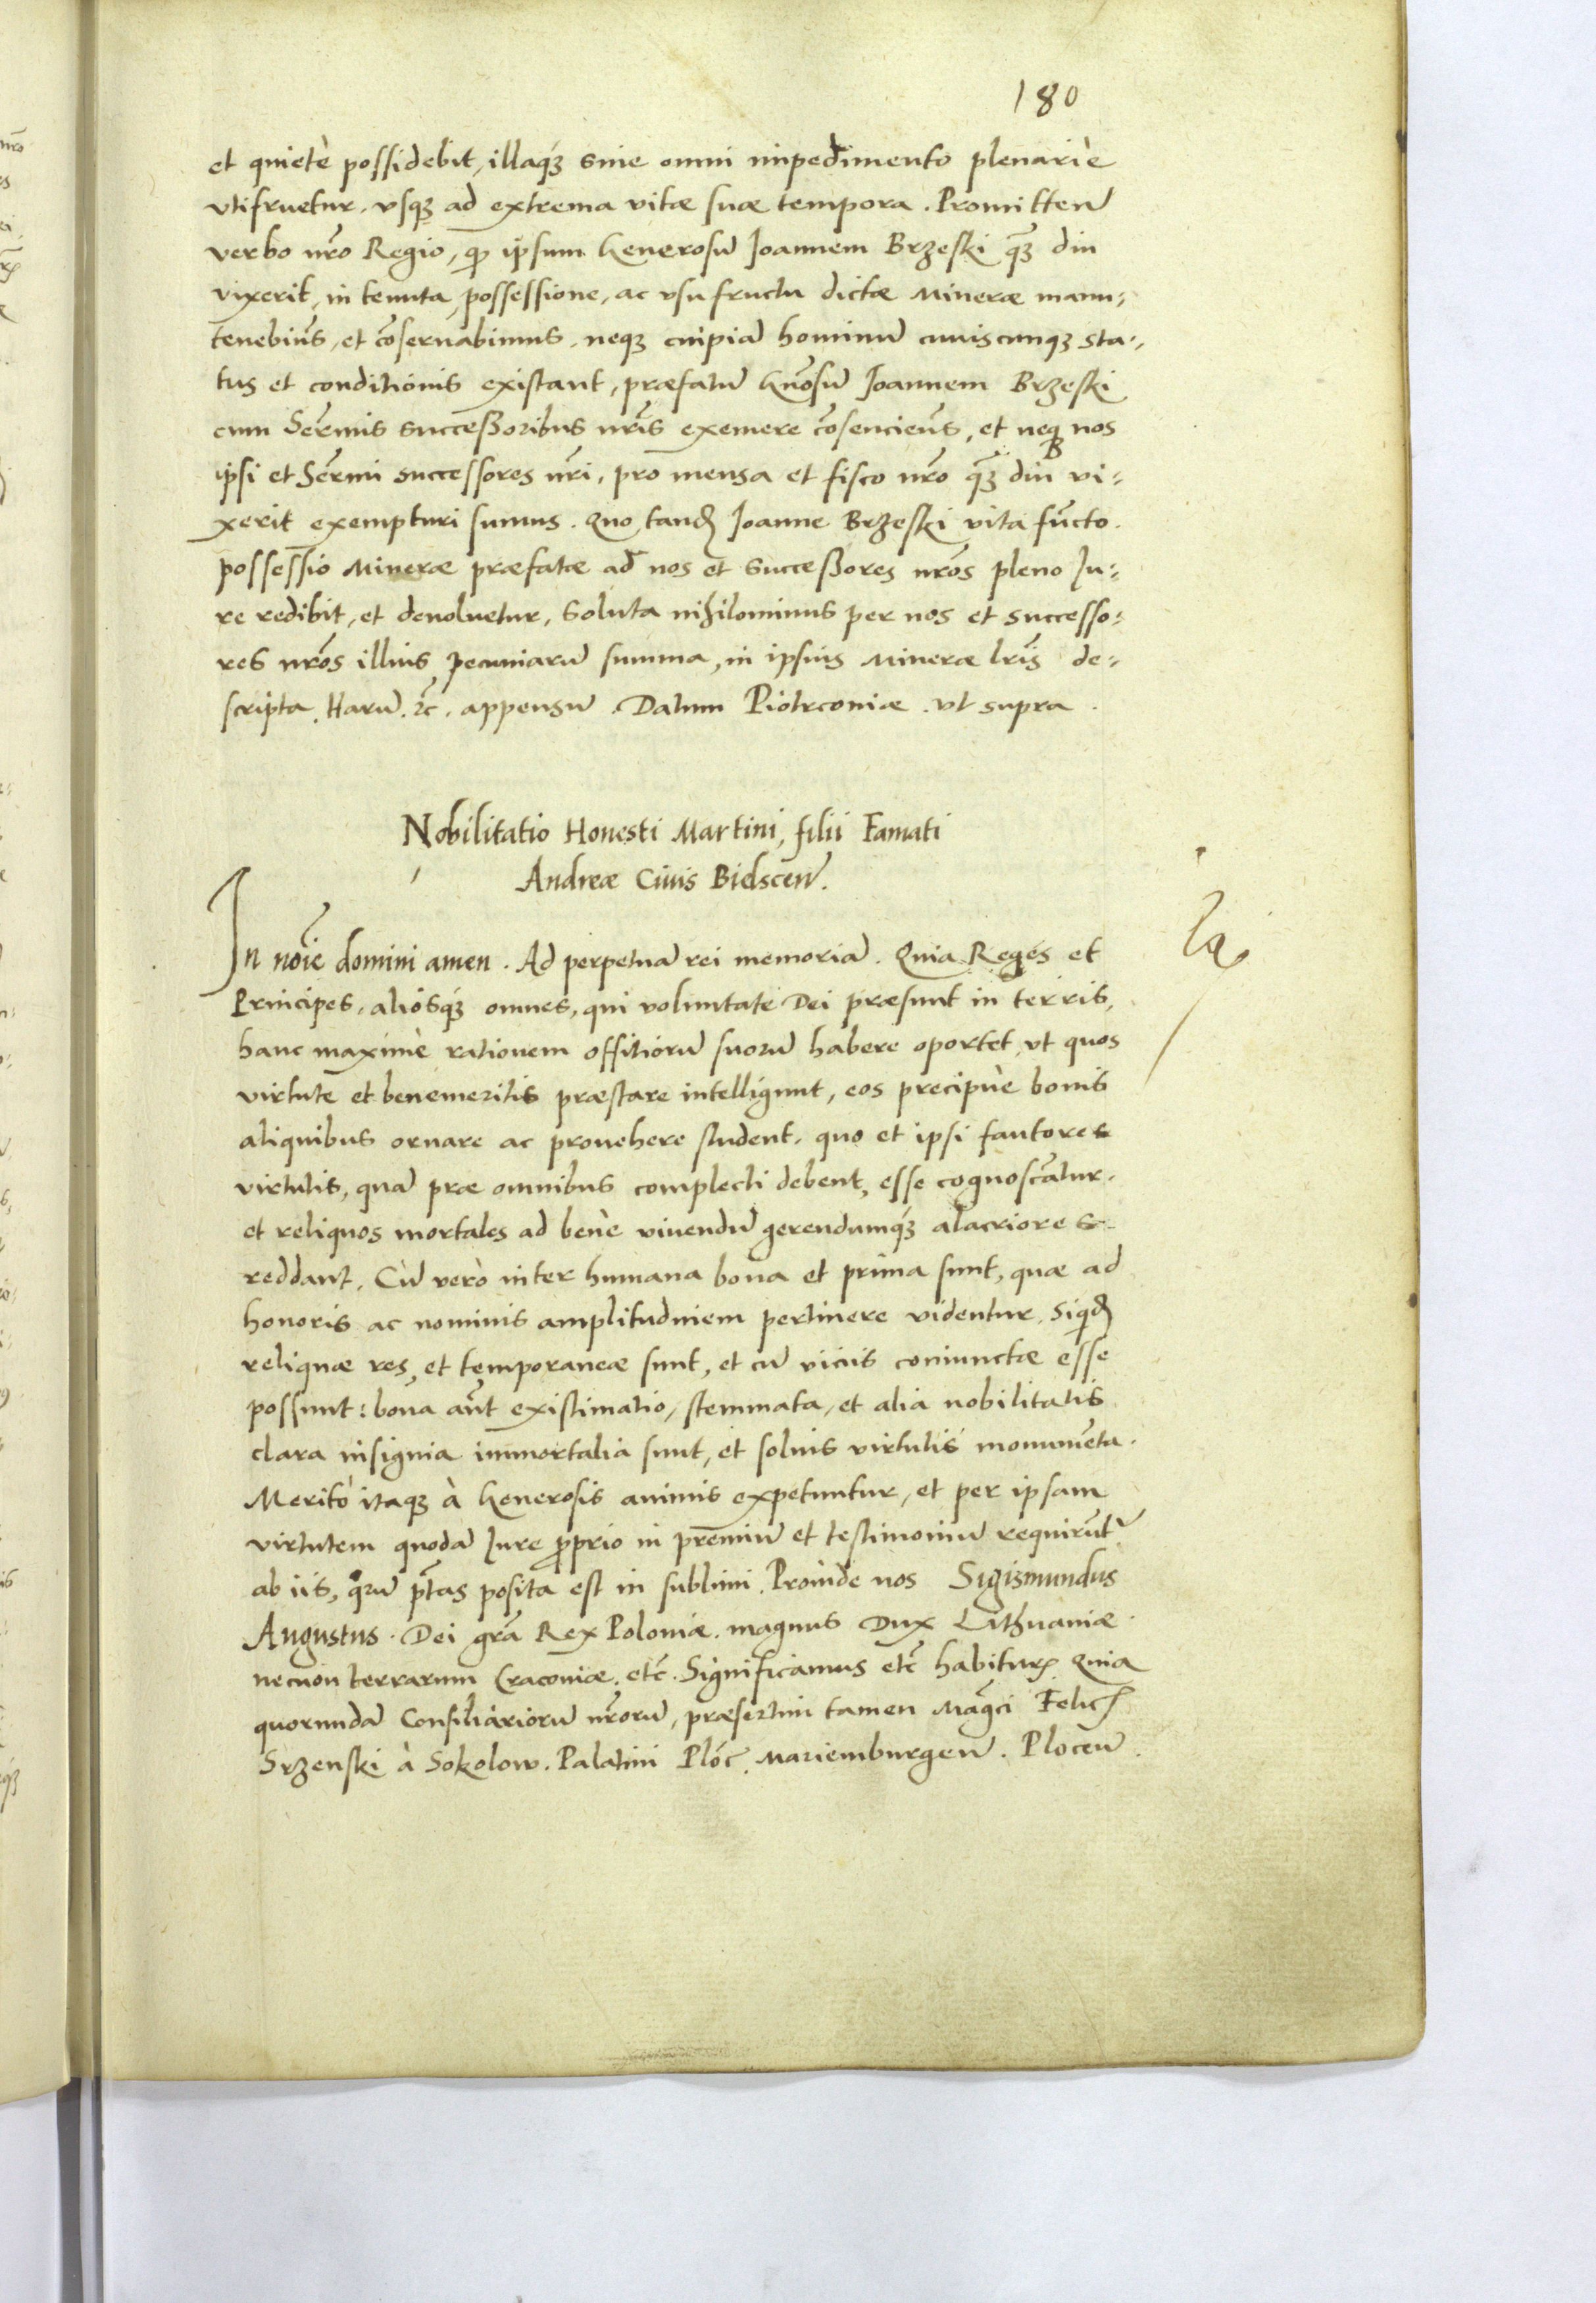 180
et quietè possidebit, illaq́ꝫ sine omni impedimento plenariè
vtifruetur, vsqꝫ ad extrema vitæ suæ tempora. Promitten̄
verbo nr̄o Regio, qp ipsum Generosū Joannem Brzeski qʒ̄ diu
vixerit, in tenuta, possessione, ac vsufructu dictæ Mineræ manu⸗
tenebim̄s, et cōseruabimus, neqꝫ cuipiā hominū cuiuscunqꝫ sta⸗
tus et conditionis existant, præfatū Gn̄osū Joannem Brzeski
cum Ser̄mis successoribus nr̄is exemere cōsenciem̄s, et neqꝫ nos
ipsi et Ser̄mi successores nr̄i, pro mensa et fisco nr̄o qʒ̄ diu vi⸗
xerit exempturi sumus. Quo tandē Joanne Brzeski vita fūcto
possessio Mineræ præfatæ ad nos et successores nr̄os pleno Ju⸗
re redibit, et deuoluetur, soluta nihilominus per nos et successo⸗
res nr̄os illius pecuniarū summa, in ipsius Mineræ lr̄is de⸗
scripta. Harū. ⁊c̄. appensū. Datum Piotrconiæ. vt supra.
Nobilitatio Honesti Martini, filii Famati
Andreæ Ciuis Bielscen̄.
In noīe domini amen. Ad perpetuā rei memoriā. Quia Reges et
Principes, aliosq́ꝫ omnes, qui voluntate Dei præsunt in terris,
hanc maximè rationem offitiorū suorū habere oportet, vt quos
virtute et benemeritis præstare intelligunt, eos precipuè bonis
aliquibus ornare ac prouehere student, quo et ipsi fautores
virtutis, quā præ omnibus complecti debent, esse cognoscātur,
et reliquos mortales ad benè viuendū gerendumq́ꝫ alacriores
reddant. Cū verò inter humana bona et prima sunt, quæ ad
honoris ac nominis amplitudinem pertinere videntur, siqdē
reliquæ res, et temporaneæ sunt, et cū viciis coniunctæ esse
possunt: bona aūt existimatio, stemmata, et alia nobilitatis
clara insignia immortalia sunt, et solius virtutis monumēta.
Meritò itaqꝫ à Generosis animis expetuntur, et per ipsam
virtutem quodā Jure proprio in premiū et testimoniū requirūtʳ
ab iis, qrū ptās posita est in sublimi. Proinde nos Sigismundus
Augustus. Dei gr̄a Rex Poloniæ. magnus Dux Lithuaniæ
necnon terrarum Cracouiæ. etc̄. Significamus etc̄ habiturꝫ Quia
quorundā Consiliariorū nr̄orū, præsertim tamen Mag̅ci Felicꝭ
Srzenski à Sokolow. Palatini Plóc̄. Mariemburgen̄. Plocen̄.